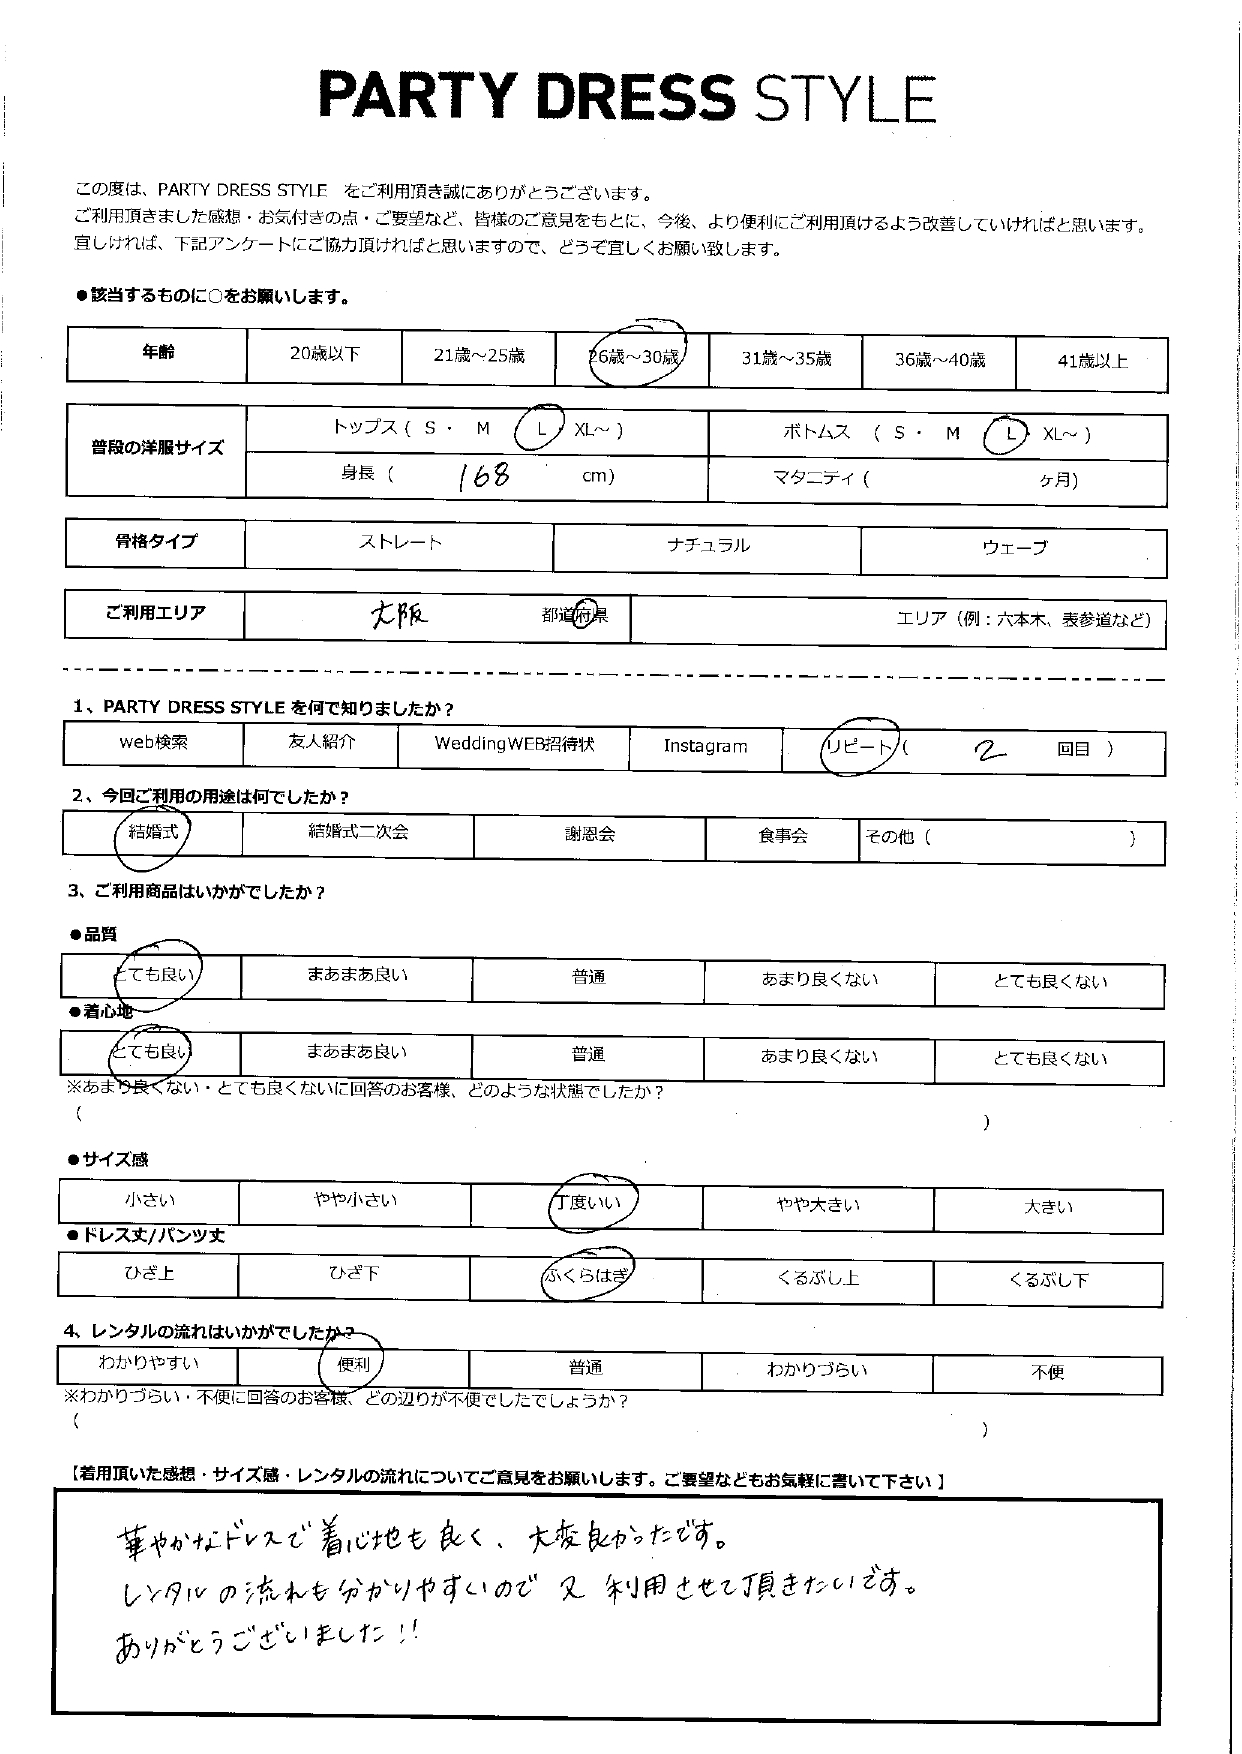 PARTY DRESS STYLE
この度は、PARTY DRESS STYLE をご利用頂き誠にありがとうございます。
ご利用頂きました感想・お気付きの点・ご要望など、皆様のご意見をもとに、今後、より便利にご利用頂けるよう改善していければと思います。
宜しければ、下記アンケートにご協力頂ければと思いますので、どうぞ宜しくお願い致します。
●該当するものに○をお願いします。
年齢 20歳以下 21歳～25歳 26歳～30歳 31歳～35歳 36歳～40歳 41歳以上
普段の洋服サイズ トップス ( S ・ M L XL～ ) ボトムス ( S ・ M L XL～ )
身長 ( 168 cm) マタニティ ( ヶ月)
骨格タイプ ストレート ナチュラル ウェーブ
ご利用エリア 大阪 都道府県 エリア（例：六本木、表参道など）
1、PARTY DRESS STYLE を何で知りましたか？
web検索 友人紹介 WeddingWEB招待状 Instagram リピート ( 2 回目 )
2、今回ご利用の用途は何でしたか？
結婚式 結婚式二次会 謝恩会 食事会 その他 ( )
3、ご利用商品はいかがでしたか？
●品質
とても良い まあまあ良い 普通 あまり良くない とても良くない
●着心地
とても良い まあまあ良い 普通 あまり良くない とても良くない
※あまり良くない・とても良くないに回答のお客様、どのような状態でしたか？
( )
●サイズ感
小さい やや小さい 丁度いい やや大きい 大きい
●ドレス丈/パンツ丈
ひざ上 ひざ下 ふくらはぎ くるぶし上 くるぶし下
4、レンタルの流れはいかがでしたか？
わかりやすい 便利 普通 わかりづらい 不便
※わかりづらい・不便に回答のお客様、どの辺りが不便でしたでしょうか？
( )
【着用頂いた感想・サイズ感・レンタルの流れについてご意見をお願いします。ご要望などもお気軽に書いて下さい】
華やかなドレスで着心地も良く、大変良かったです。
レンタルの流れも分かりやすいので又利用させて頂きたいです。
ありがとうございました!!